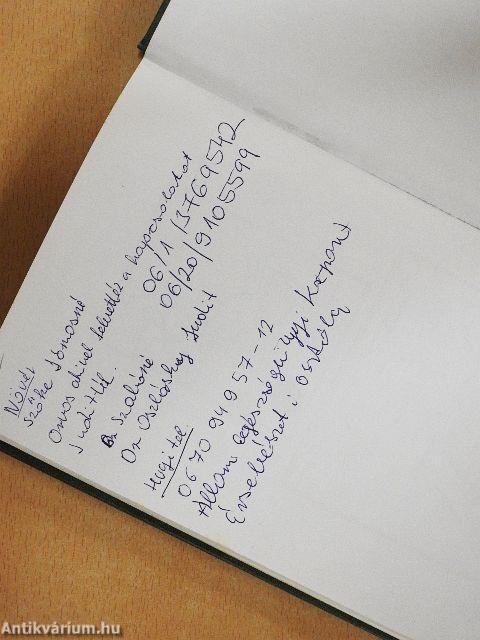 Nővér
Szőke Tamásné
Orvos akivel felvettéz a kapcsolatot
Judittól. 06/1/3769542
Szabóné 06/20/9105599
Dr Oszlácsky Judit
Hugi tel.
0670 94 957-12
Állami egészségügyi Központ
Érsebészet i osztály
Antikvárium.hu